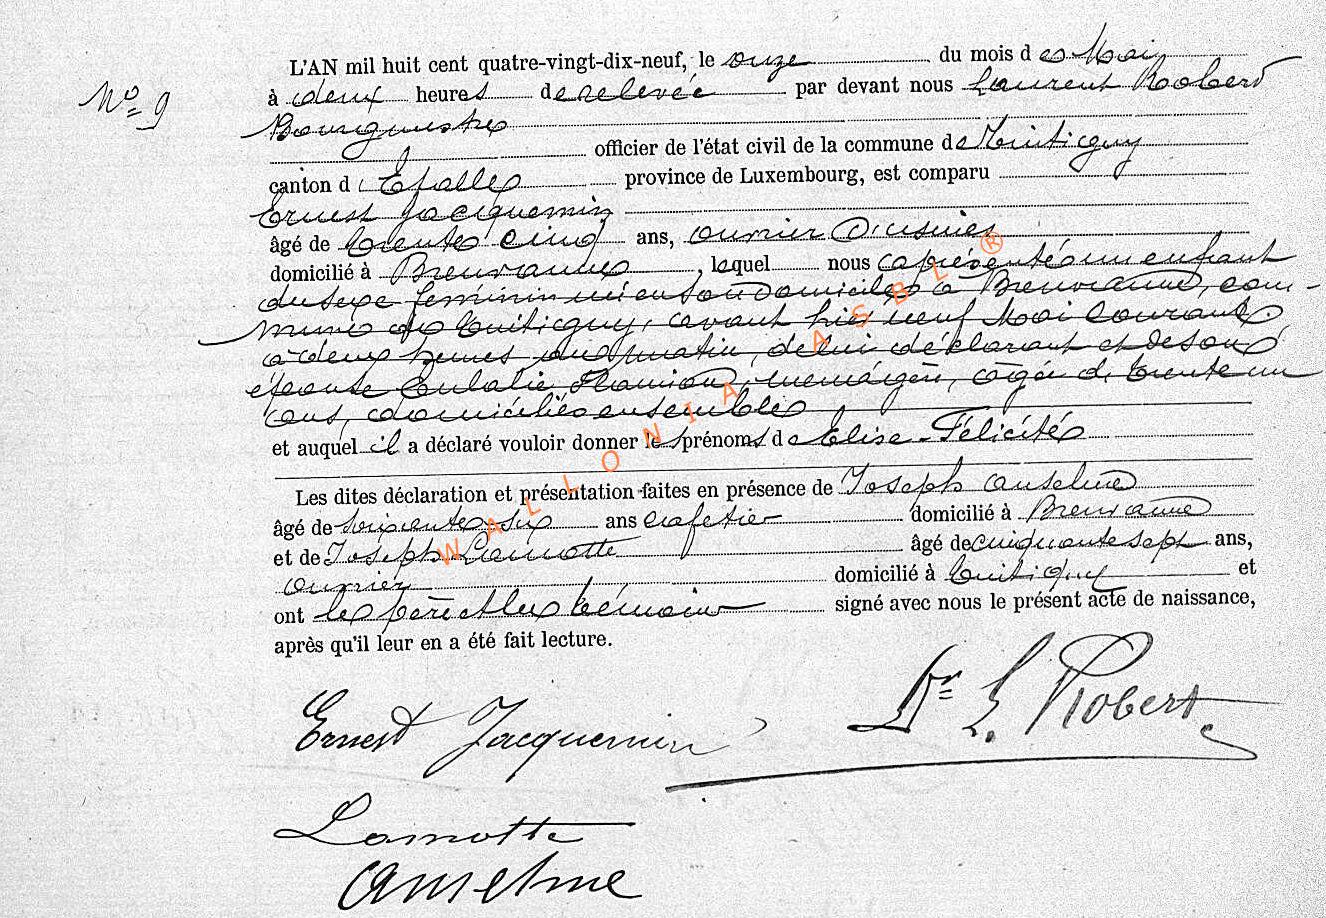 No 9
L'AN mil huit cent quatre-vingt-dix-neuf, le onze du mois de Mai
à deux heures de relevée par devant nous Laurent Robert
Bourgmestre
officier de l'état civil de la commune de Tintigny
canton d'Etalle province de Luxembourg, est comparu
Ernest Jacquemin
âgé de trente cinq ans, ouvrier d'usines
domicilié à Breuvanne, lequel nous a présenté un enfant
du sexe feminin né en son domicile à Breuvanne, com-
mune de Tintigny, avant hier neuf Mai courant
à deux heures du matin, de lui déclarant et de son
épouse Eulalie, ménagère, âgée de trente un
ans, domiciliés ensemble
et auquel il a déclaré vouloir donner les prénoms de Elise-Félicité
Les dites déclaration et présentation faites en présence de Joseph Anselme
âgé de soixante six ans cafetier domicilié à Breuvanne
et de Joseph Lamotte âgé de cinquante sept ans,
ouvrier domicilié à Tintigny et
ont le père et les témoins signé avec nous le présent acte de naissance,
après qu'il leur en a été fait lecture.
Ernest Jacquemin
Dr L. Robert
Lamotte
Anselme
WALLONIA ASBL ®